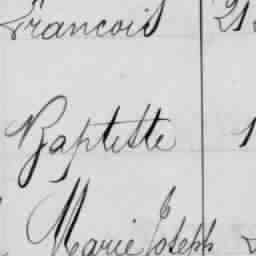 Francois 21
Baptiste 1
Marie Joseph